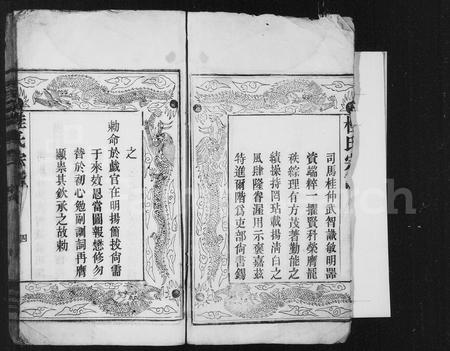 司馬桂仲武智識敏明器
資端粹一擢賢科榮膺龍
秩綜理有方茂著勤能之
績操持罔玷載揚清白之
風肆隆眷渥用示褒嘉茲
特進爾階爲吏部尙書錫
之
勅命於戲官在明揚簡拔尙需
于來效恩當圖報懋修勿
替於初心勉副訓詞再膺
顯崇其欽承之故勅
桂氏宗
四